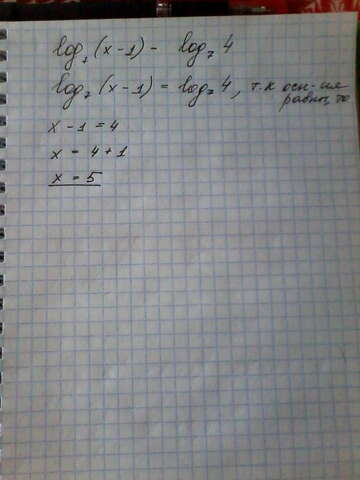 log₇(x-1) - log₇4
log₇(x-1) = log₇4, т.к осн-ия
равны, то
x - 1 = 4
x = 4 + 1
x = 5